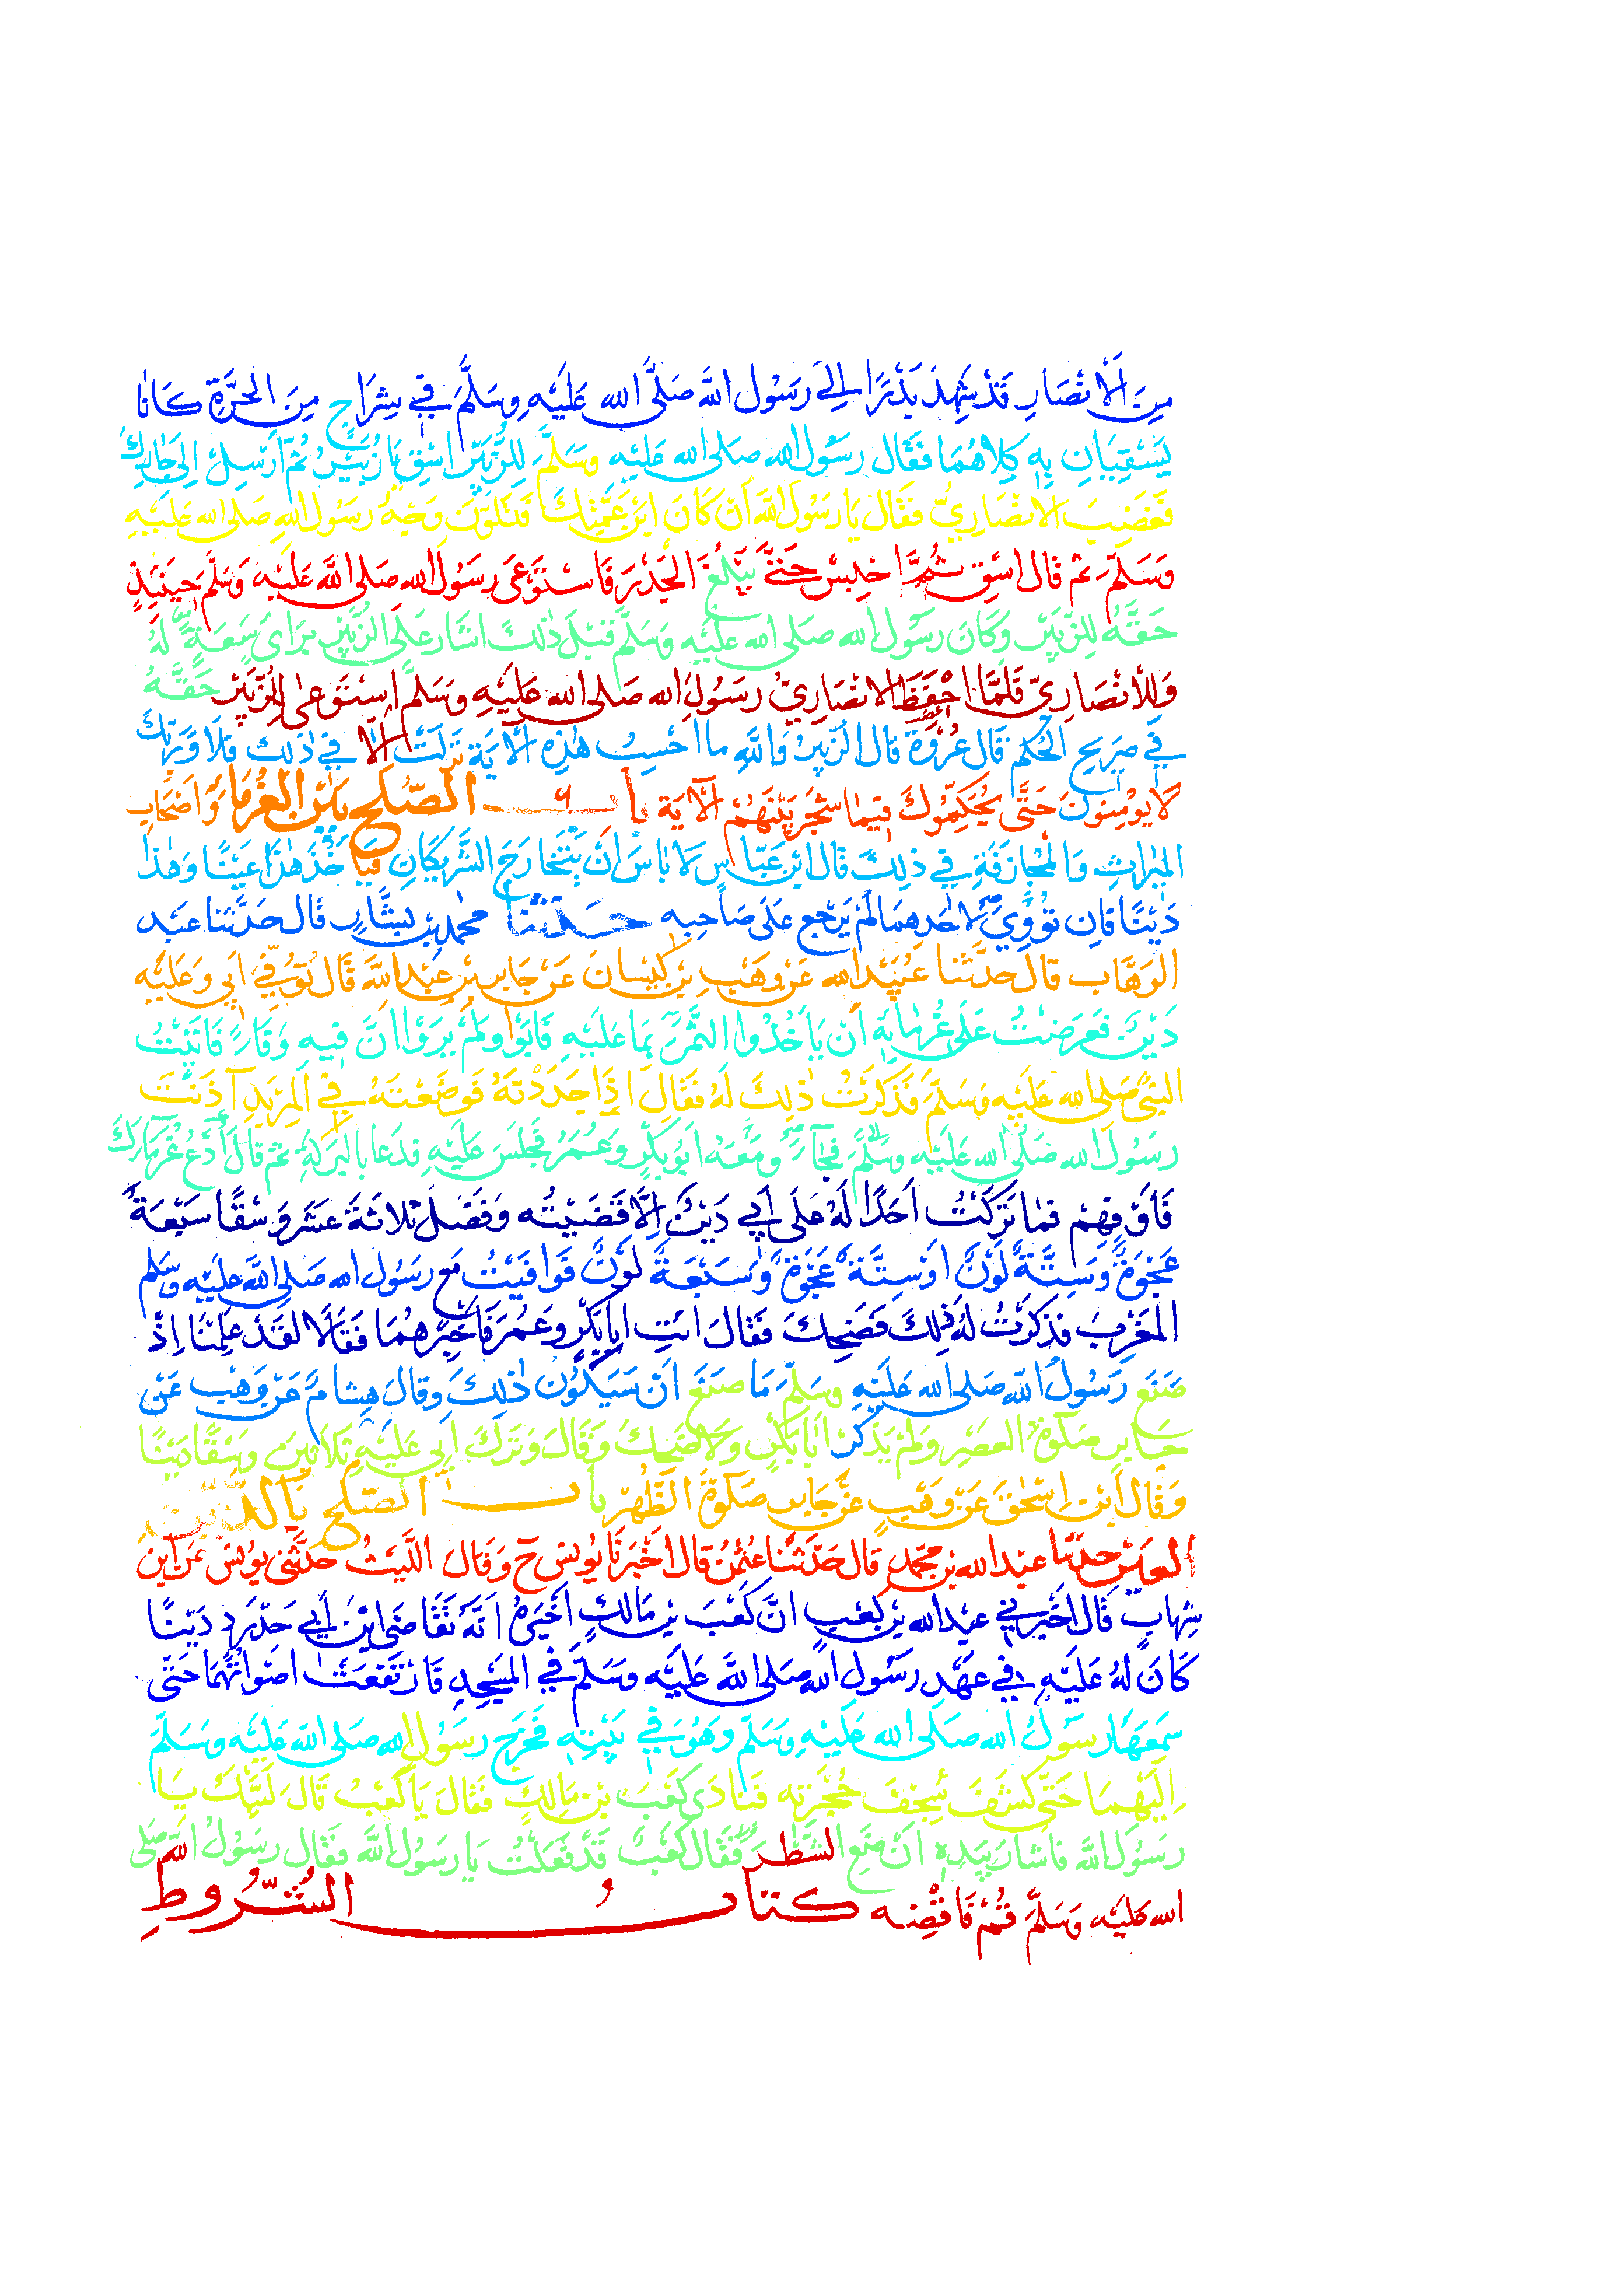 مِنَ الْاَنْصَارِ قَدْ شَهِدَ بَدْرًا اِلَى رَسُوْلِ اللّٰهِ صَلَّى الله عَلَيْهِ وَسَلَّمَ فِي شِرَاجٍ مِنَ الحَرَّةِ كَانَا
يَسْقِيَانِ بِهِ كِلاهُمَا فَقَال رَسُوْل الله صلى الله عليه وسَلَّمَ لِلزُّبَيْرِ اسْقِ يَا زُبَيْرُ ثُمَّ اَرْسِلْ اِلَى جَارِكَ
فَغَضِبَ الانْصَارِيُّ فَقَال يَا رَسُوْلَ اللّٰه اَنْ كَانَ ابْنَ عَمَّتِكَ فَتَلَوَّنَ وَجْهُ رَسُوْل اللهِ صَلى الله عَلَيْهِ
وَسَلَّمَ ثم قَال اسْقِ ثُمَّ احْبِسْ حَتّٰى يَبْلُغَ الجَدْرَ فَاسْتَوْعَى رَسُوْلُ الله صَلى اللّٰه عَلَيْهِ وَسَلَّمَ حِيْنَئِذٍ
حَقَّهُ لِلزُّبَيْرِ وَكَانَ رَسُوْل الله صَلى الله عَلَيْهِ وَسَلَّمَ قَبْلَ ذٰلِكَ اشَارَ عَلَى الزُّبَيْرِ بِرَأىٍ سَعَةٍ لَهُ
وَلِلْانْصَارِيِّ فَلَمَّا احْفَظَ الانْصَارِيُّ رَسُوْلَ الله صَلى الله عَلَيْهِ وَسَلَّمَ اسْتَوْعى لِلزُّبَيْرِ حَقَّهُ
فِي صَرِيحِ الحُكْمِ قَال عُرْوَةُ قال الزُّبَيْرُ وَاللّٰهِ ما احْسِبُ هٰذِهِ الْآيَةَ نَزَلَتْ اِلَّا فِي ذٰلِكَ فَلَا وَرَبِّكَ
لَا يُوْمِنُوْنَ حَتَّى يُحَكِّمُوْكَ فِيْمَا شَجَرَ بَيْنَهُمْ الْآيَةَ بابُ الصُّلحِ بَيْنَ الغُرَمَاءِ وَاَصْحَابِ
المِيْرَاثِ وَالْمُجَازَفَةِ فِي ذٰلِكَ قَال ابْنُ عَبَّاسٍ لَا بَاسَ اَنْ يَتَخَارَجَ الشَّرِيْكَانِ فَيَأخُذَ هٰذَا عَيْنًا وَهٰذَا
دَيْنًا فَاِن تَوِيَ لِاَحَدِهِمَا لَمْ يَرْجِع عَلَى صَاحِبِهِ حَدَّثَنَا مُحَمَّدُ بْنُ بَشَّارٍ قَال حَدَّثَنَا عَبْد
الوَهَّاب قالَ حَدَّثنا عُبَيْدُ الله عَنْ وَهْبِ بْنِ كَيْسَانَ عَنْ جَابِرِ بْنِ عَبْدِ اللّٰه قَال تُوُفِّيَ اَبِي وَعَلَيْهِ
دَيْنٌ فَعَرَضْتُ عَلَى غُرَمَائِهِ اَنْ يَأْخُذُوا التَّمْرَ بِمَا عَلَيْهِ فَاَبَوْا وَلَمْ يَرَوْا اَنَّ فِيهِ وَفَاءً فَاَتَيْتُ
النَّبِيَّ صَلى الله عَلَيْهِ وَسَلَّمَ فَذَكَرْتُ ذٰلِكَ لَهُ فَقَالَ اِذَا جَدَدْتَهُ فَوَضَعْتَهُ فِي المِرْبَدِ آذَنْتَ
رَسُوْلَ الله صَلَّى الله عَلَيْهِ وَسَلَّمَ فَجَآءَ وَمَعَهُ اَبُوْ بَكْرٍ وَعُمَرُ فَجَلَسَ عَلَيْهِ فَدَعَا بِالبَرَكَةِ ثم قَالَ ادْعُ غُرَمَاءَكَ
فَاَوْفِهِمْ فَمَا تَرَكْتُ اَحَدًا لَهُ عَلَى اَبِي دَيْنٌ اِلَّا قَضَيْتُه وَفَضَلَ ثَلاثَةَ عَشَرَ وَسْقًا سَبْعَةٌ
عَجْوَةٌ وَسِتَّةٌ لَوْنٌ اَوْ سِتَّةٌ عَجْوَةٌ وَسَبْعَةٌ لَوْنٌ فَوَافَيْتُ مَع رَسُوْل الله صَلى اللّٰه عَلَيْهِ وَسَلم
المَغْرِبَ فَذَكَرْتُ لَهُ ذٰلِكَ فَضَحِكَ فَقَالَ ائْتِ اَبَا بَكْرٍ وَعُمَرَ فَاَخْبِرْهُمَا فَقَالَا لَقَدْ عَلِمْنَا اِذْ
صَنَعَ رَسُوْلُ اللّٰه صَلى الله عَلَيْهِ وسَلَّمَ مَا صَنَعَ اَنْ سَيَكُوْنُ ذٰلِكَ وقَالَ هِشَامٌ عَنْ وَهْبٍ عَنْ
جَابِرٍ صَلٰوةَ العصْرِ وَلَمْ يَذكُرْ اَبَا بَكْرٍ وَلَا ضَحِكَ وَقَالَ وَتَرَكَ اَبِي عَلَيْهِ ثَلاثِيْنَ وَسْقًا دَيْنًا
وَقَال ابْنُ اِسْحٰقَ عَنْ وَهْبٍ عَنْ جَابِرٍ صَلٰوةَ الظُّهْرِ بابُ الصُّلحِ بِالدَّيْنِ
العَيْنِ حدثنا عبد الله بن مُحَمَّدٍ قَال حَدَّثَنَا عُثْمٰنُ قَال اَخْبَرَنَا يُوْنس ح وَقَال اللَّيْثُ حَدَّثَنِي يُوْنس عَنِ ابْنِ
شِهَابٍ قَال اَخْبَرَنِي عَبْدُ الله بْنُ كَعْبٍ اَنَّ كَعْبَ بْنَ مَالِكٍ اَخْبَرَهُ اَنَّهُ تَقَاضَى ابْنَ اَبِي حَدْرَدٍ دَيْنًا
كَانَ لَهُ عَلَيْهِ فِي عَهْدِ رَسُوْل الله صَلى اللّٰه عَلَيْهِ وَسَلَّمَ فِي المَسْجِدِ فَارْتَفَعَتْ اصْوَاتُهُمَا حَتّٰى
سَمِعَهَا رَسُوْلُ الله صَلَى الله عَلَيْهِ وَسَلَّمَ وَهُوَ فِي بَيْتِهِ فَخَرَجَ رَسُوْل الله صَلَى اللّٰه عَلَيْهِ وَسَلَّمَ
اِلَيْهِمَا حَتّٰى كَشَفَ سِجْفَ حُجْرَتِهِ فَنَادَى كَعْبَ بْنَ مَالِكٍ فَقَالَ يَا كَعْبُ قَالَ لَبَّيْكَ يَا
رَسُوْلَ اللّٰه فَاشَارَ بِيَدِهِ اَنْ ضَعِ الشَّطْرَ فَقَال كَعْبٌ قَدْ فَعَلْتُ يَا رَسُوْلَ اللّٰه فَقَال رَسُوْلُ اللّٰه صَلى
الله عَلَيْه وَسَلَّمَ قُمْ فَاقْضِهِ كتابُ الشُّرُوطِ